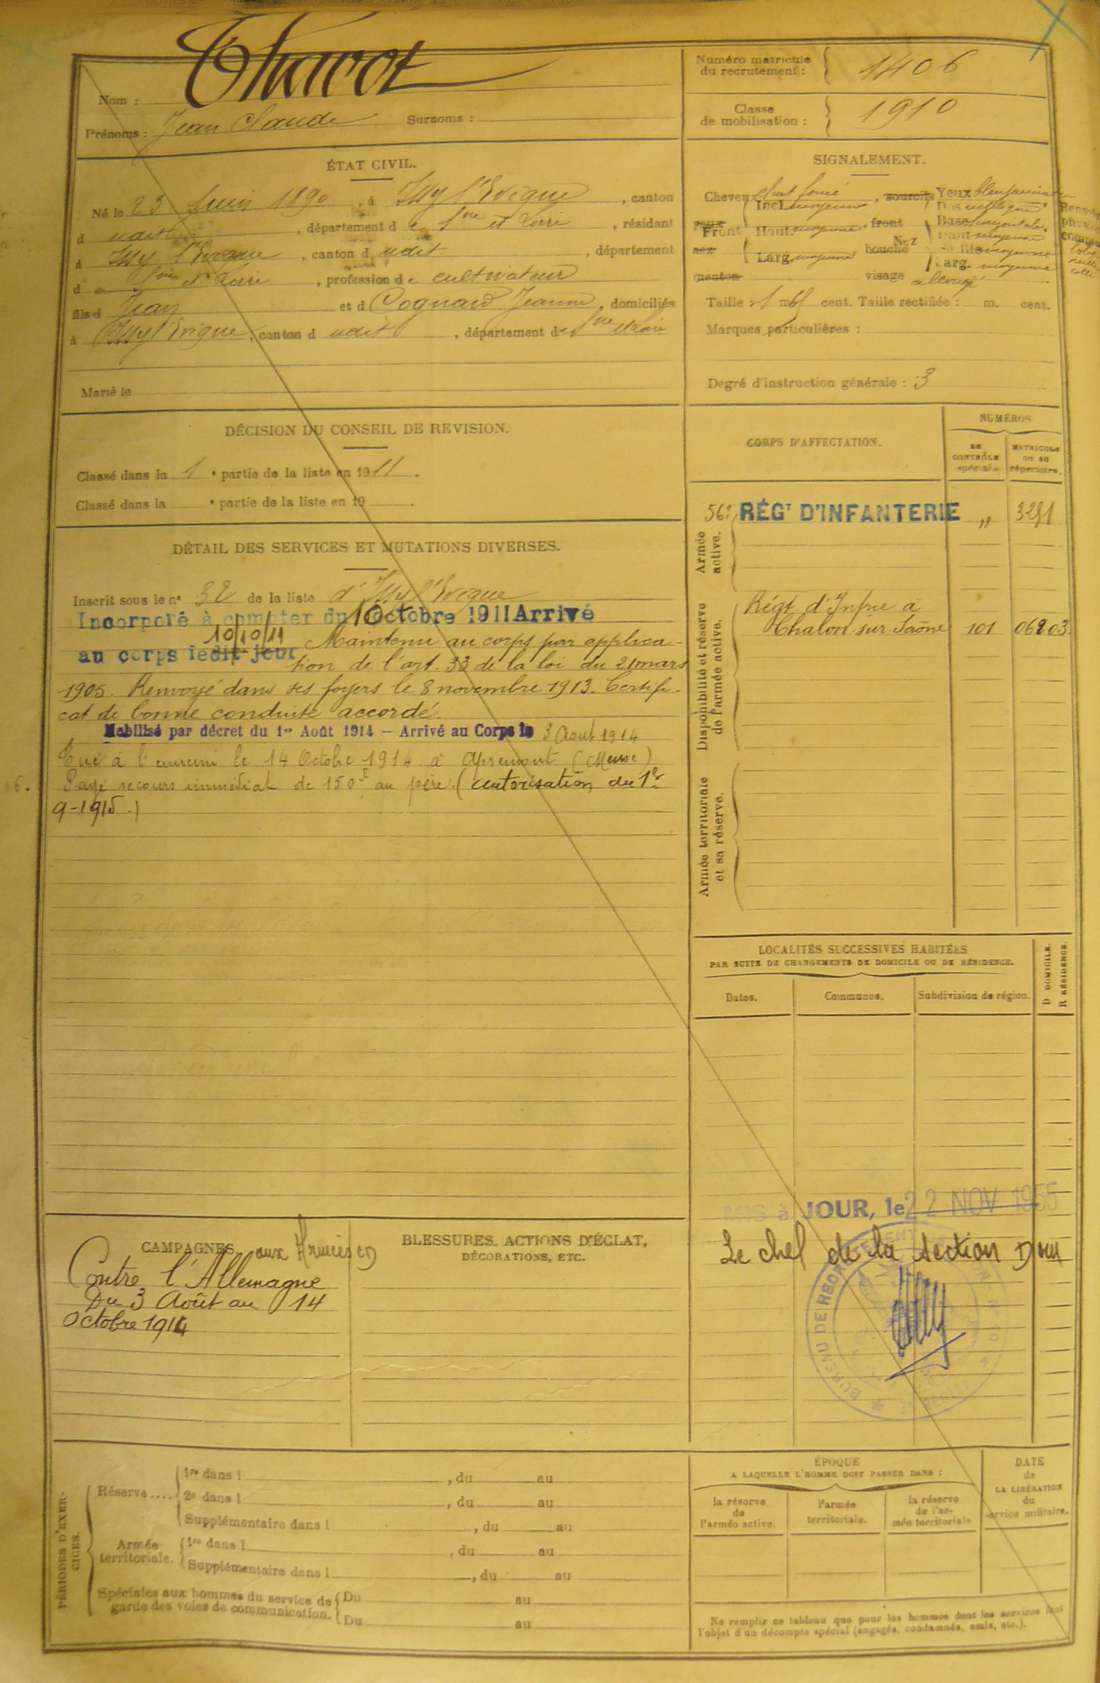 Nom : Tharot
Prénoms : Jean Claude Surnoms :
Numéro matricule du recrutement : 1406
Classe de mobilisation : 1910
ÉTAT CIVIL.
Né le 23 Juin 1890, à Issy l'Evêque, canton
d udit, département d e Sne et Loire, résidant
à Issy l'Evêque, canton d udit, département
d e Sne et Loire, profession d e cultivateur
fils d Jean et d Cognard Jeanne, domiciliés
à Issy l'Evêque, canton d udit, département d e Sne et Loire
Marié le
SIGNALEMENT.
Cheveux chat foncé, sourcils Yeux
yeux Incl. moyenne
Front Haut. moyenne, front Base
nez Larg. moyenne bouche Nez Haut. moyenne
menton visage allongé Larg. moyenne
Taille : 1 m. cent. Taille rectifiée : m. cent.
Marques particulières :
Degré d'instruction générale : 3
DÉCISION DU CONSEIL DE REVISION.
Classé dans la 1e partie de la liste en 1911.
Classé dans la e partie de la liste en 19
CORPS D'AFFECTATION.
NUMÉROS
DE CONTRÔLE spécial.
MATRICULE OU AU répertoire.
Armée active.
56e RÉGt D'INFANTERIE " 3251
Disponibilité et réserve de l'armée active.
Régt d'Infrie a
Chalon sur Saône 101 06203
Armée territoriale et sa réserve.
DÉTAIL DES SERVICES ET MUTATIONS DIVERSES.
Inscrit sous le n° 32 de la liste d'Issy l'Evêque
Incorporé à compter du 10 Octobre 1911 Arrivé
au corps ledit jour 10/10/11 Maintenu au corps par applica-
tion de l'art. 33 de la loi du 21 mars
1905. Renvoyé dans ses foyers le 8 novembre 1913. Certifi-
cat de bonne conduite accordé.
Mobilisé par décret du 1er Août 1914 – Arrivé au Corps le 3 Aout 1914
Tué à l'ennemi le 14 Octobre 1914 à Apremont (Meuse)
Payé secours immédiat de 150f au père. (autorisation du 1er
9-1915.)
LOCALITÉS SUCCESSIVES HABITÉES
PAR SUITE DE CHANGEMENTS DE DOMICILE OU DE RÉSIDENCE.
Dates. Communes. Subdivision de région. D. DOMICILE. R. RÉSIDENCE.
MIS à JOUR, le 22 NOV 1955
Le chef de la section
BUREAU DE RECRUTEMENT
CAMPAGNES aux Armées
Contre l'Allemagne
Du 3 Août au 14
Octobre 1914
BLESSURES, ACTIONS D'ÉCLAT,
DÉCORATIONS, ETC.
PÉRIODES D'EXERCICES.
Réserve .... 1re dans l , du au
2e dans l , du au
Supplémentaire dans l , du au
Armée territoriale. 1re dans l , du au
Supplémentaire dans l , du au
Spéciales aux hommes du service de garde des voies de communication. Du au
Du au
ÉPOQUE
A LAQUELLE L'HOMME DOIT PASSER DANS :
la réserve de l'armée active.
l'armée territoriale.
la réserve de l'armée territoriale
DATE de LA LIBÉRATION du service militaire.
Ne remplir ce tableau que pour les hommes dont les services font
l'objet d'un décompte spécial (engagés, condamnés, omis, etc.).